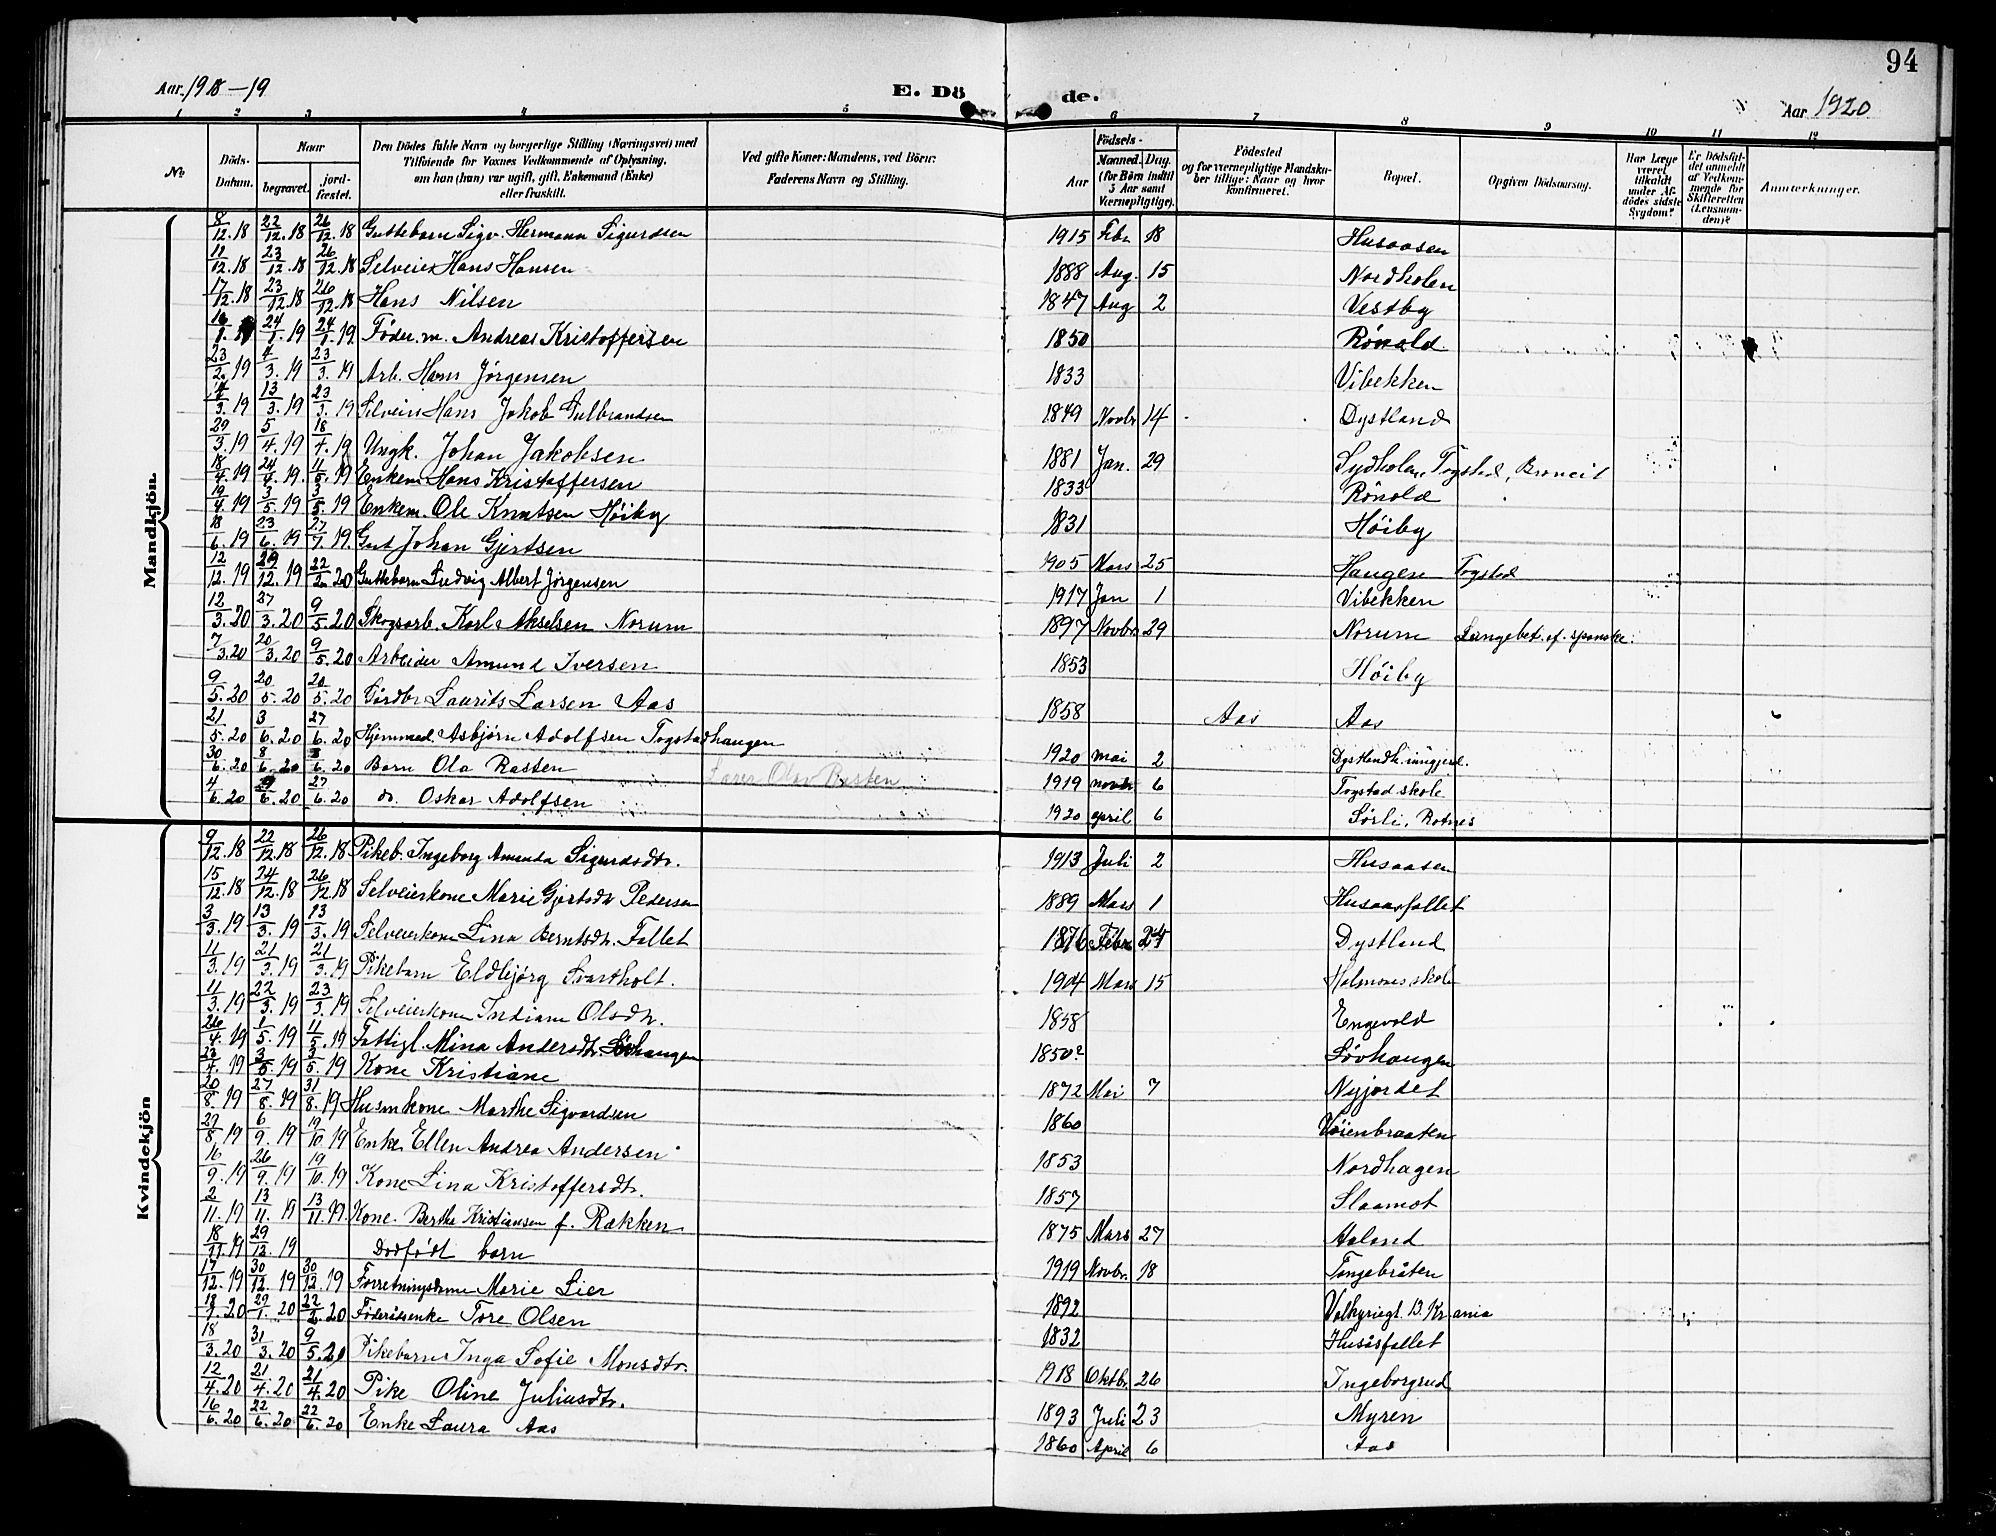 94
Aar. 1918-19 E. Dö de. Aar 1920
1 2 3 4 5 6 7 8 9 10 11 12
№ Döds-Datum. Naar begravet. jord-fæstet. Den Dödes fulde Navn og borgerlige Stilling (Næringsvei) med Tilföiende for Voxnes Vedkommende af Oplysning, om han (hun) var ugift, gift, Enkemand (Enke) eller fraskilt. Ved gifte Koner: Mandens, ved Börn: Faderens Navn og Stilling. Födsels- Aar Maaned. Dag. (for Börn indtil 5 Aar samt Værnepligtige). Födested og for værnepligtige Mandsku-ber tillige: Naar og hvor konfirmeret. Bopæl. Opgiven Dödsaarsag. Har Læge været tilkaldt under Af-dödes sidste Sygdom? Er Dödsfal-det anmeldt af Vedkom-mende for Skifteretten (Lensman-den)? Anmærkninger.
Mandkjön.
8/12.18 22/12.18 26/12.18 Guttebarn Sigv. Hermann Sigurdsen 1915 Febr 18 Husaasen
11/12.18 23/12.18 26/12.18 Selveier Hans Hansen 1888 Aug. 15 Nordholen
17/12.18 23/12.18 26/12.18 Hans Nilsen 1847 Aug 2 Vestby
16/1. 24/1.19 24/1.19. Föder.m. Andreas Kristoffersen 1850 Rönold
23/2.19 4/3.19 23/3.19 Arb. Hans Jørgensen 1833 Vibekken
14/3.19 13/3.19 23/3.19 Selveier Hans Jakob Gulbrandsen 1849 Novbr 14 Dystland
29/3.19 5/4.19 18/4.19 Ungk. Johan Jakobsen 1881 Jan. 29 Sydholen, Togstad,
18/4.19 24/4.19. 11/5.19 Enkem Hans Kristoffersen 1833 Rönold
19/4.19 3/5.19 3/5.19 Enkem. Ole Knutsen Höiby 1831 Höiby
18/6.19 23/6.19 27/7.19. Gut Johan Gjertsen 1905 Mars 25 Haugen Togstad
12/12.19 29/12.19 22/2.20 Guttebarn Ludvig Albert Jørgensen 1917 Jan 1 Vibekken
12/3.20 27/3.20 9/5.20 Skogsarb. Karl Akselsen Norum 1897 Novbr 29 Norum Lungebet. ef. spanske.
7/3.20 20/3.20 9/5.20 Arbeider Amund Iversen 1853 Höiby
9/5.20 20/5.20 20/5.20 Gårdbr Laurits Larsen Aas 1858 Aas Aas
21/5.20 3/6.20 27/6.20 Hjemmed. Asbjørn Adolfsen Togstadhaugen 1920 mai 2
30/6.20 8/6.20 8/6.20 Barn Ola Rasten Farer Olav Rasten 1919 novbr 6 Togstad skole
4/6.20 /6.20 27/6.20 do. Oskar Adolfsen 1920 april 6 Sørli, Rotnes
Kvindekjön
9/12.18 22/12.18 26/12.18 Pikeb. Ingeborg Amunda Sigurdsdtr. 1913 Juli 2 Husaasen
15/12.18 24/12.18 26/12.18 Selveierkone Marie Gjertsdtr Pedersen 1889 Mars 1 Husaasfallet
3/3.19 13/3.19 13/3.19 Selveierkone Lina Berntsdtr. Fallet 1876 Febr 24 Dystland
11/3.19 21/3.19 21/3.19 Pikebarn Eldbjørg Svartholt. 1904 Mars 15 Holmones skole
11/3.19 22/3.19 23/3.19 Selveierkone Indiane Olsdtr. 1858 Engevold
26/4.19 1/5.19 11/5.19 Fattigl. Mina Andersdtr. Løvhaugen 1850? Løvhaugen
23/4.19 3/5.19 3/5.19 Kone Kristiane 1872 Mai 7 Nyjordet
20/8.19 27/8.19 31/8.19 Husmkone Marthe Sigvardsen 1860 Vöienbraaten
29/8.19 6/9.19 19/10.19 Enke Ellen Andrea Andersen 1853 Nordhagen
16/9.19 26/9.19 19/10.19 Kone Lina Kristoffersdtr. 1857 Slaamot
2/11.19 13/11.19 13/11.19 Kone. Berthe Kristiansen f. Rakken 1875 Mars 27 Aaland
18/11.19 29/12.19 Dødfødt barn 1919 Novbr. 18 Tangebråten
17/12.19 30/12.19 30/12.19 Forretningsdame Marie Lier 1892 Valkyriegt. 13. Kr.ania
18/1.20 29/1.20 22/2.20 Föderådsenke Tore Olsen 1832 Husåsfallet
18/3.20 31/3.20 9/5.20 Pikebarn Inga Sofie Monsdtr. 1918 Oktbr. 26 Ingeborgrud
12/4.20 21/4.20 21/4.20 Pike Oline Juliusdtr. 1893 Juli 23 Myren
16/6.20 22/6.20 22/6.20 Enke Laura Aas 1860 April 6 Aas